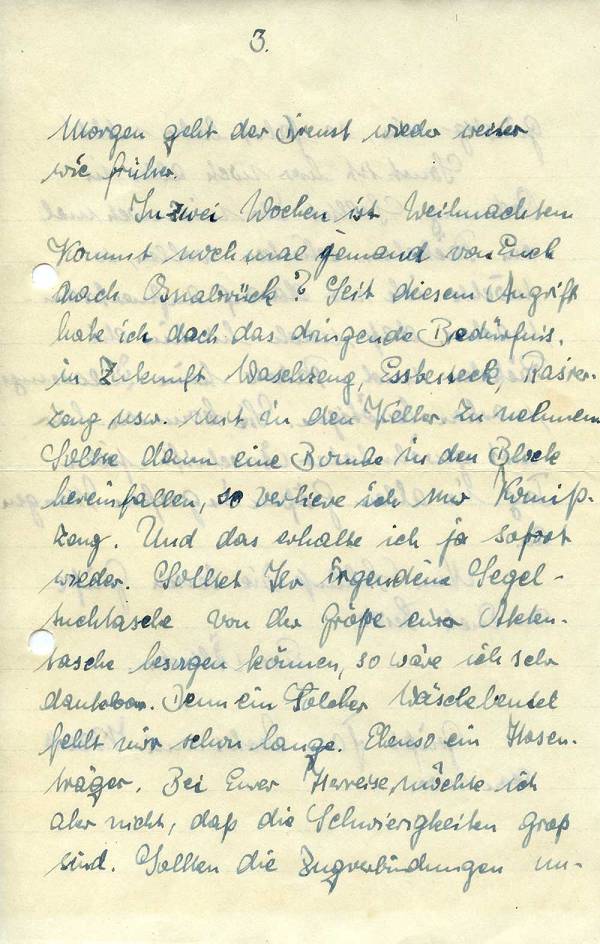 3.
Morgen geht der Dienst wieder weiter
wie früher.
In zwei Wochen ist Weihnachten
Kommt noch mal jemand von Euch
nach Osnabrück? Seit diesem Angriff
habe ich doch das dringende Bedürfnis,
in Zukunft Waschzeug, Essbesteck, Rasier-
zeug usw. mit in den Keller zu nehmen.
Sollte dann eine Bombe in den Block
hereinfallen, so verliere ich nur Komiß-
zeug. Und das erhalte ich ja sofort
wieder. Solltet Ihr irgendeine Segel-
tuchtasche von der Größe einer Akten-
tasche besorgen können, so wäre ich sehr
dankbar. Denn ein solcher Wäschebeutel
fehlt mir schon lange. Ebenso ein Hosen-
träger. Bei Eurer Herreise möchte ich
aber nicht, daß die Schwierigkeiten groß
sind. Sollten die Zugverbindungen un-